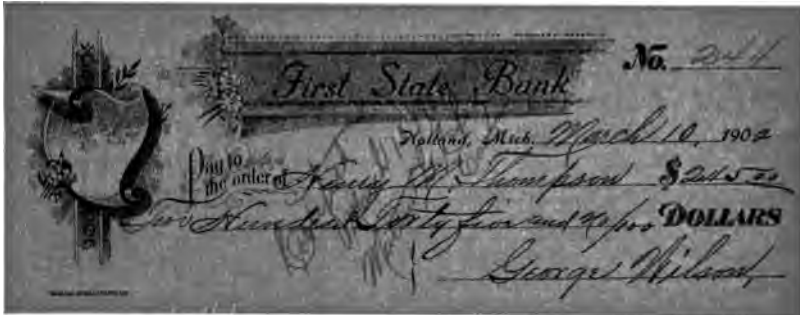 No. 244
First State Bank
Holland, Mich. March 10, 1902
Pay to the order of Henry M. Thompson $245.00
Two Hundred Forty five and no/100 DOLLARS
George Wilson